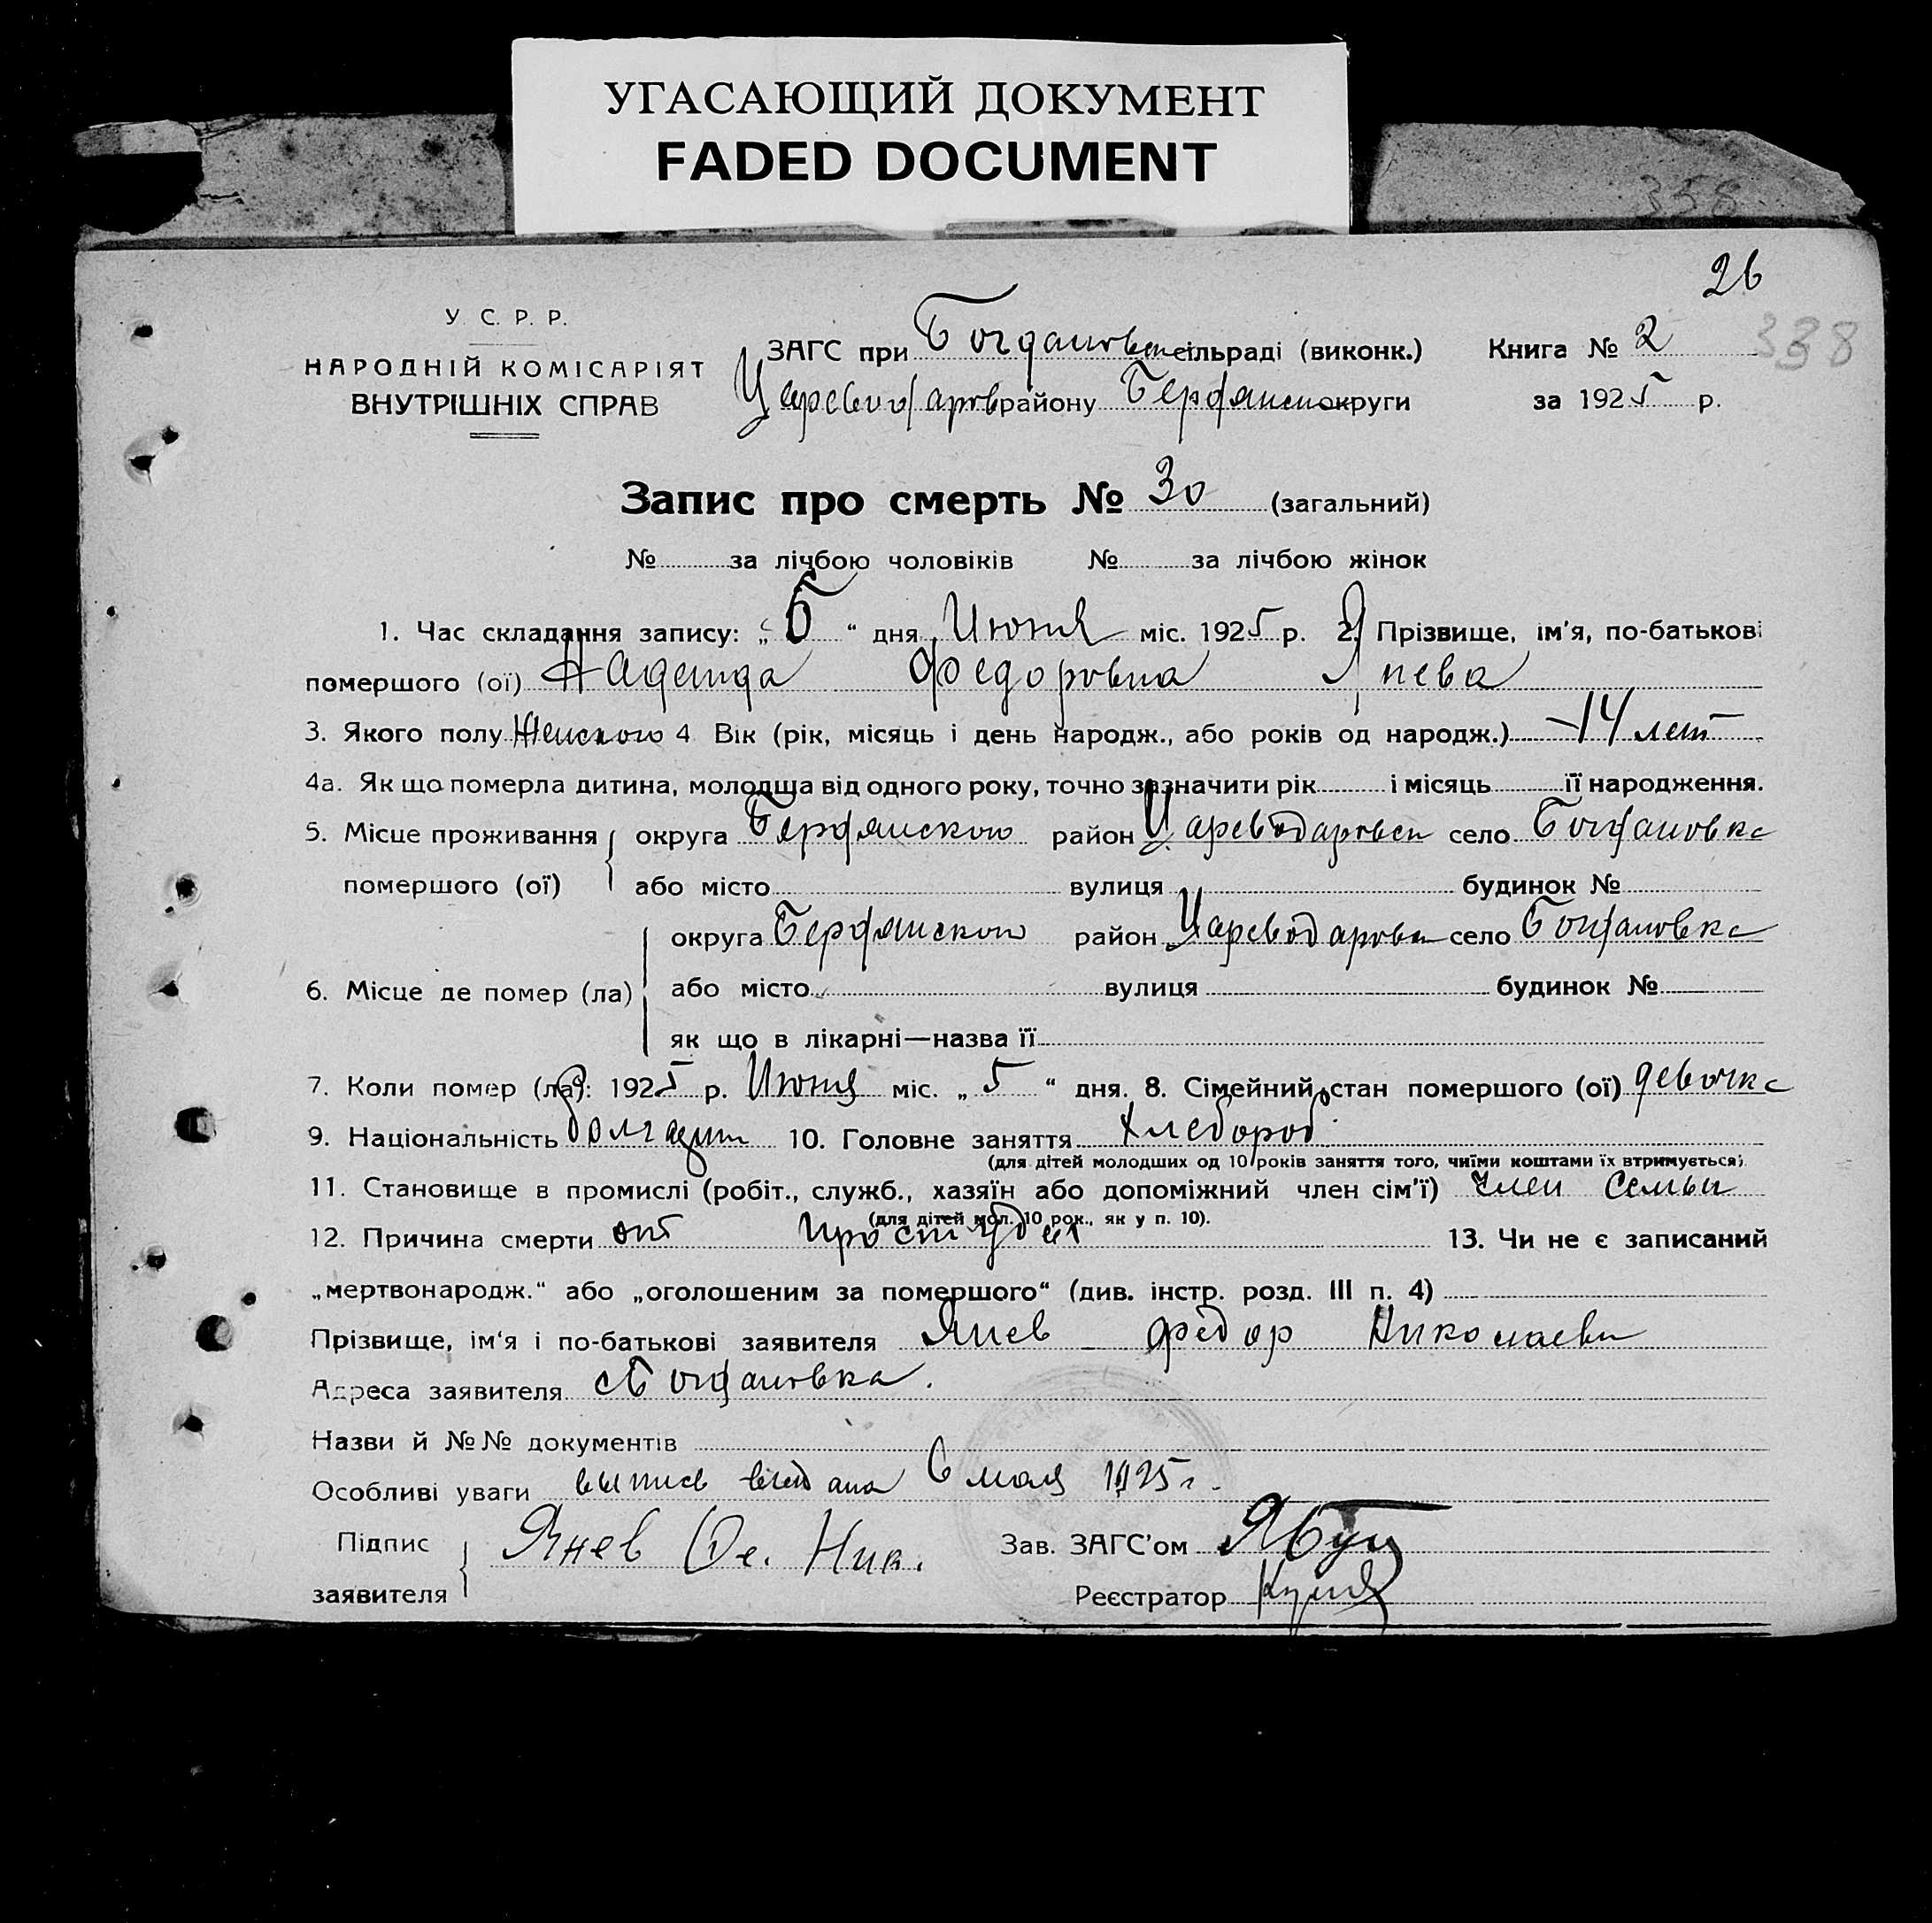 УГАСАЮЩИЙ ДОКУМЕНТ
FADED DOCUMENT
358
26
338
У. С. Р. Р.
НАРОДНІЙ КОМІСАРІЯТ
ВНУТРІШНІХ СПРАВ
ЗАГС при Богдановск сільраді (виконк.) Книга № 2
Цареводаров району Бердянск округи за 1925 р.
Запис про смерть № 30 (загальний)
№ за лічбою чоловіків № за лічбою жінок
1. Час складання запису: „6“ дня Июня міс. 1925 р. 2. Прізвище, ім'я, по-батькові
помершого (ої) Надежда Федоровна Янева
3. Якого полу Женского 4 Вік (рік, місяць і день народж., або років од народж.) 14 лет
4а. Як що померла дитина, молодща від одного року, точно зазначити рік і місяць її народження.
5. Місце проживання округа Бердянского район Цареводаровск село Богдановка
помершого (ої) або місто вулиця будинок №
округа Бердянского район Цареводаровск село Богдановка
6. Місце де помер (ла) або місто вулиця будинок №
як що в лікарні—назва її
7. Коли помер (ла): 1925 р. Июня міс. „5“ дня. 8. Сімейний стан помершого (ої) девочка
9. Національність болгарин 10. Головне заняття хлебороб
(для дітей молодших од 10 років заняття того, чиїми коштами їх втримується)
11. Становище в промислі (робіт., служб., хазяїн або допоміжний член сім'ї) член семьи
(для дітей мол. 10 рок., як у п. 10).
12. Причина смерти от простуды 13. Чи не є записаний
„мертвонародж.“ або „оголошеним за помершого“ (див. інстр. розд. III п. 4)
Прізвище, ім'я і по-батькові заявителя Янев Федор Николаеви
Адреса заявителя с Богдановка.
Назви й №№ документів
Особливі уваги выпись выдана 6 мая 1925 г.
Підпис заявителя Янев Фе. Ник. Зав. ЗАГС'ом
Реєстратор